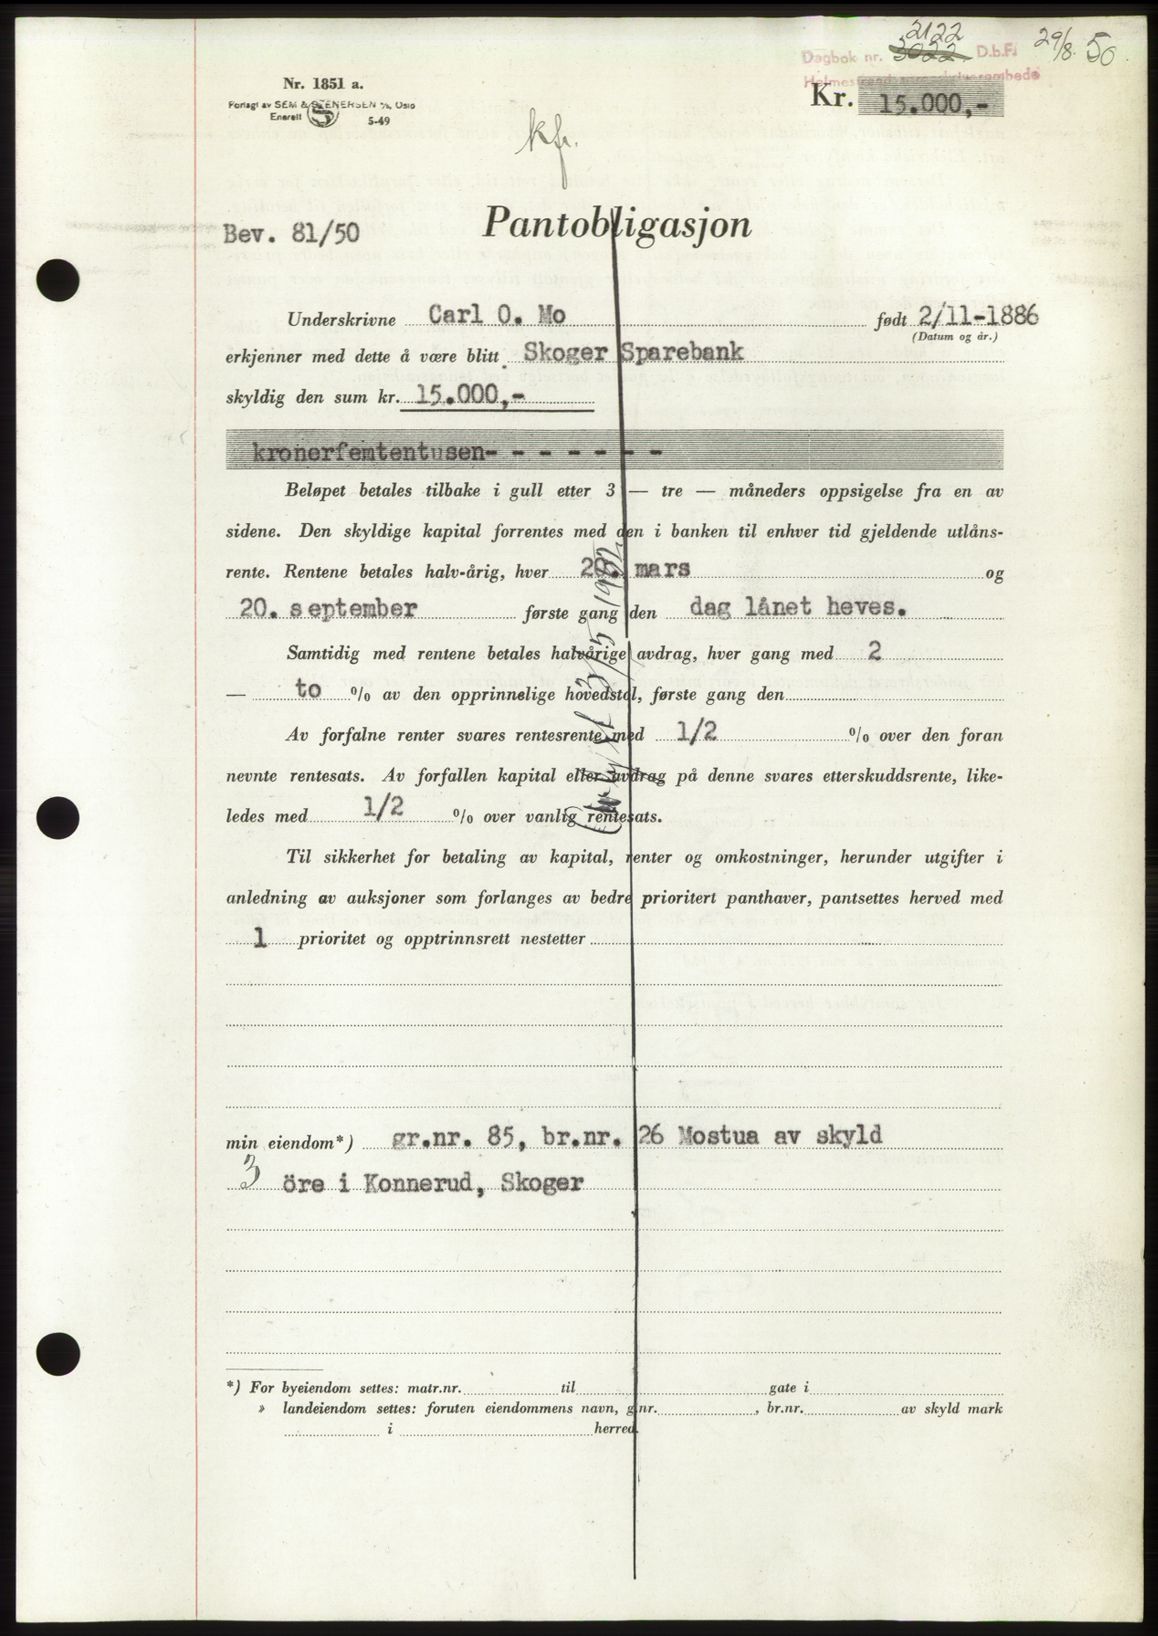 2122
Dagbok nr. 3022 D.b.F. 29/8. 50.
Nr. 1851 a.
Forlagt av SEM & STENERSEN A/S, Oslo
Enerett 5-49
Kr. 15.000,-
kfr.
Pantobligasjon
Bev. 81/50
Underskrivne Carl O. Mo født 2/11-1886
(Datum og år.)
erkjenner med dette å være blitt Skoger Sparebank
skyldig den sum kr. 15.000,-
kronerfemtentusen- - - - - - -
Beløpet betales tilbake i gull etter 3 — tre — måneders oppsigelse fra en av
sidene. Den skyldige kapital forrentes med den i banken til enhver tid gjeldende utlåns-
rente. Rentene betales halv-årig, hver 20. mars og
20. september første gang den dag lånet heves.
Samtidig med rentene betales halvårige avdrag, hver gang med 2
— to % av den opprinnelige hovedstol, første gang den
Av forfalne renter svares rentesrente med 1/2 % over den foran
nevnte rentesats. Av forfallen kapital eller avdrag på denne svares etterskuddsrente, like-
ledes med 1/2 % over vanlig rentesats.
Til sikkerhet for betaling av kapital, renter og omkostninger, herunder utgifter i
anledning av auksjoner som forlanges av bedre prioritert panthaver, pantsettes herved med
1 prioritet og opptrinnsrett nestetter
min eiendom*) gr.nr. 85, br.nr. 26 Mostua av skyld
3 öre i Konnerud, Skoger
*) For byeiendom settes: matr.nr. til gate i
» landeiendom settes: foruten eiendommens navn, g.nr. , br.nr. av skyld mark
i herred.